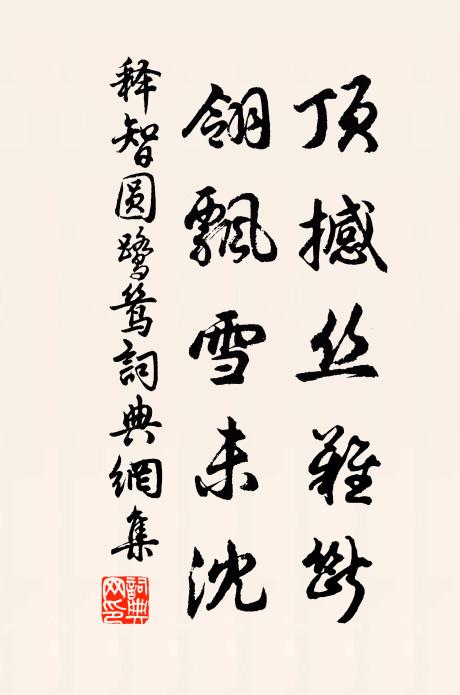 顶撼丝难断
翎飘雪未沈
释智圆鹭鸶詞典網集
詞典网印